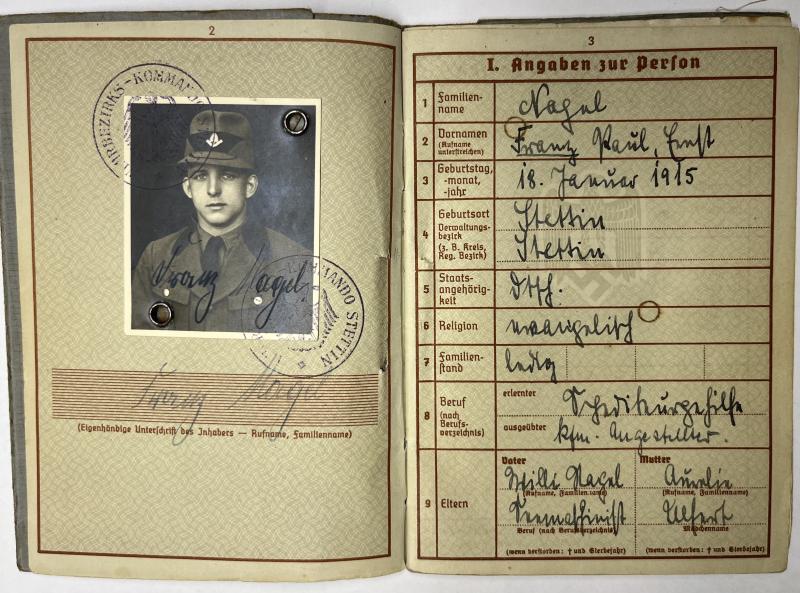 2
WEHRBEZIRKS-KOMMANDO
Franz Nagel
KOMMANDO STETTIN
Franz Nagel
(Eigenhändige Unterschrift des Inhabers — Rufname, Familienname)
3
I. Angaben zur Person
1 Familien-
name
Nagel
2 Vornamen
(Rufname
unterstreichen)
Franz Paul, Ernst
3 Geburtstag,
-monat,
-jahr
18. Januar 1915
4 Geburtsort
Verwaltungs-
bezirk
(z. B. Kreis,
Reg. Bezirk)
Stettin
Stettin
5 Staats-
angehörig-
keit
dtsch.
6 Religion
evangelisch
7 Familien-
stand
ledig
8 Beruf
(nach
Berufs-
verzeichnis)
erlernter
Spediteurgehilfe
ausgeübter
kfm. Angestellter.
9 Eltern
Vater
Mutter
Willi Nagel
Aurelie
(Rufname, Familienname)
(Rufname, Familienname)
Seemaschinist
Ulfert
Beruf (nach Berufsverzeichnis)
Mädchenname
(wenn verstorben: † und Sterbejahr)
(wenn verstorben: † und Sterbejahr)